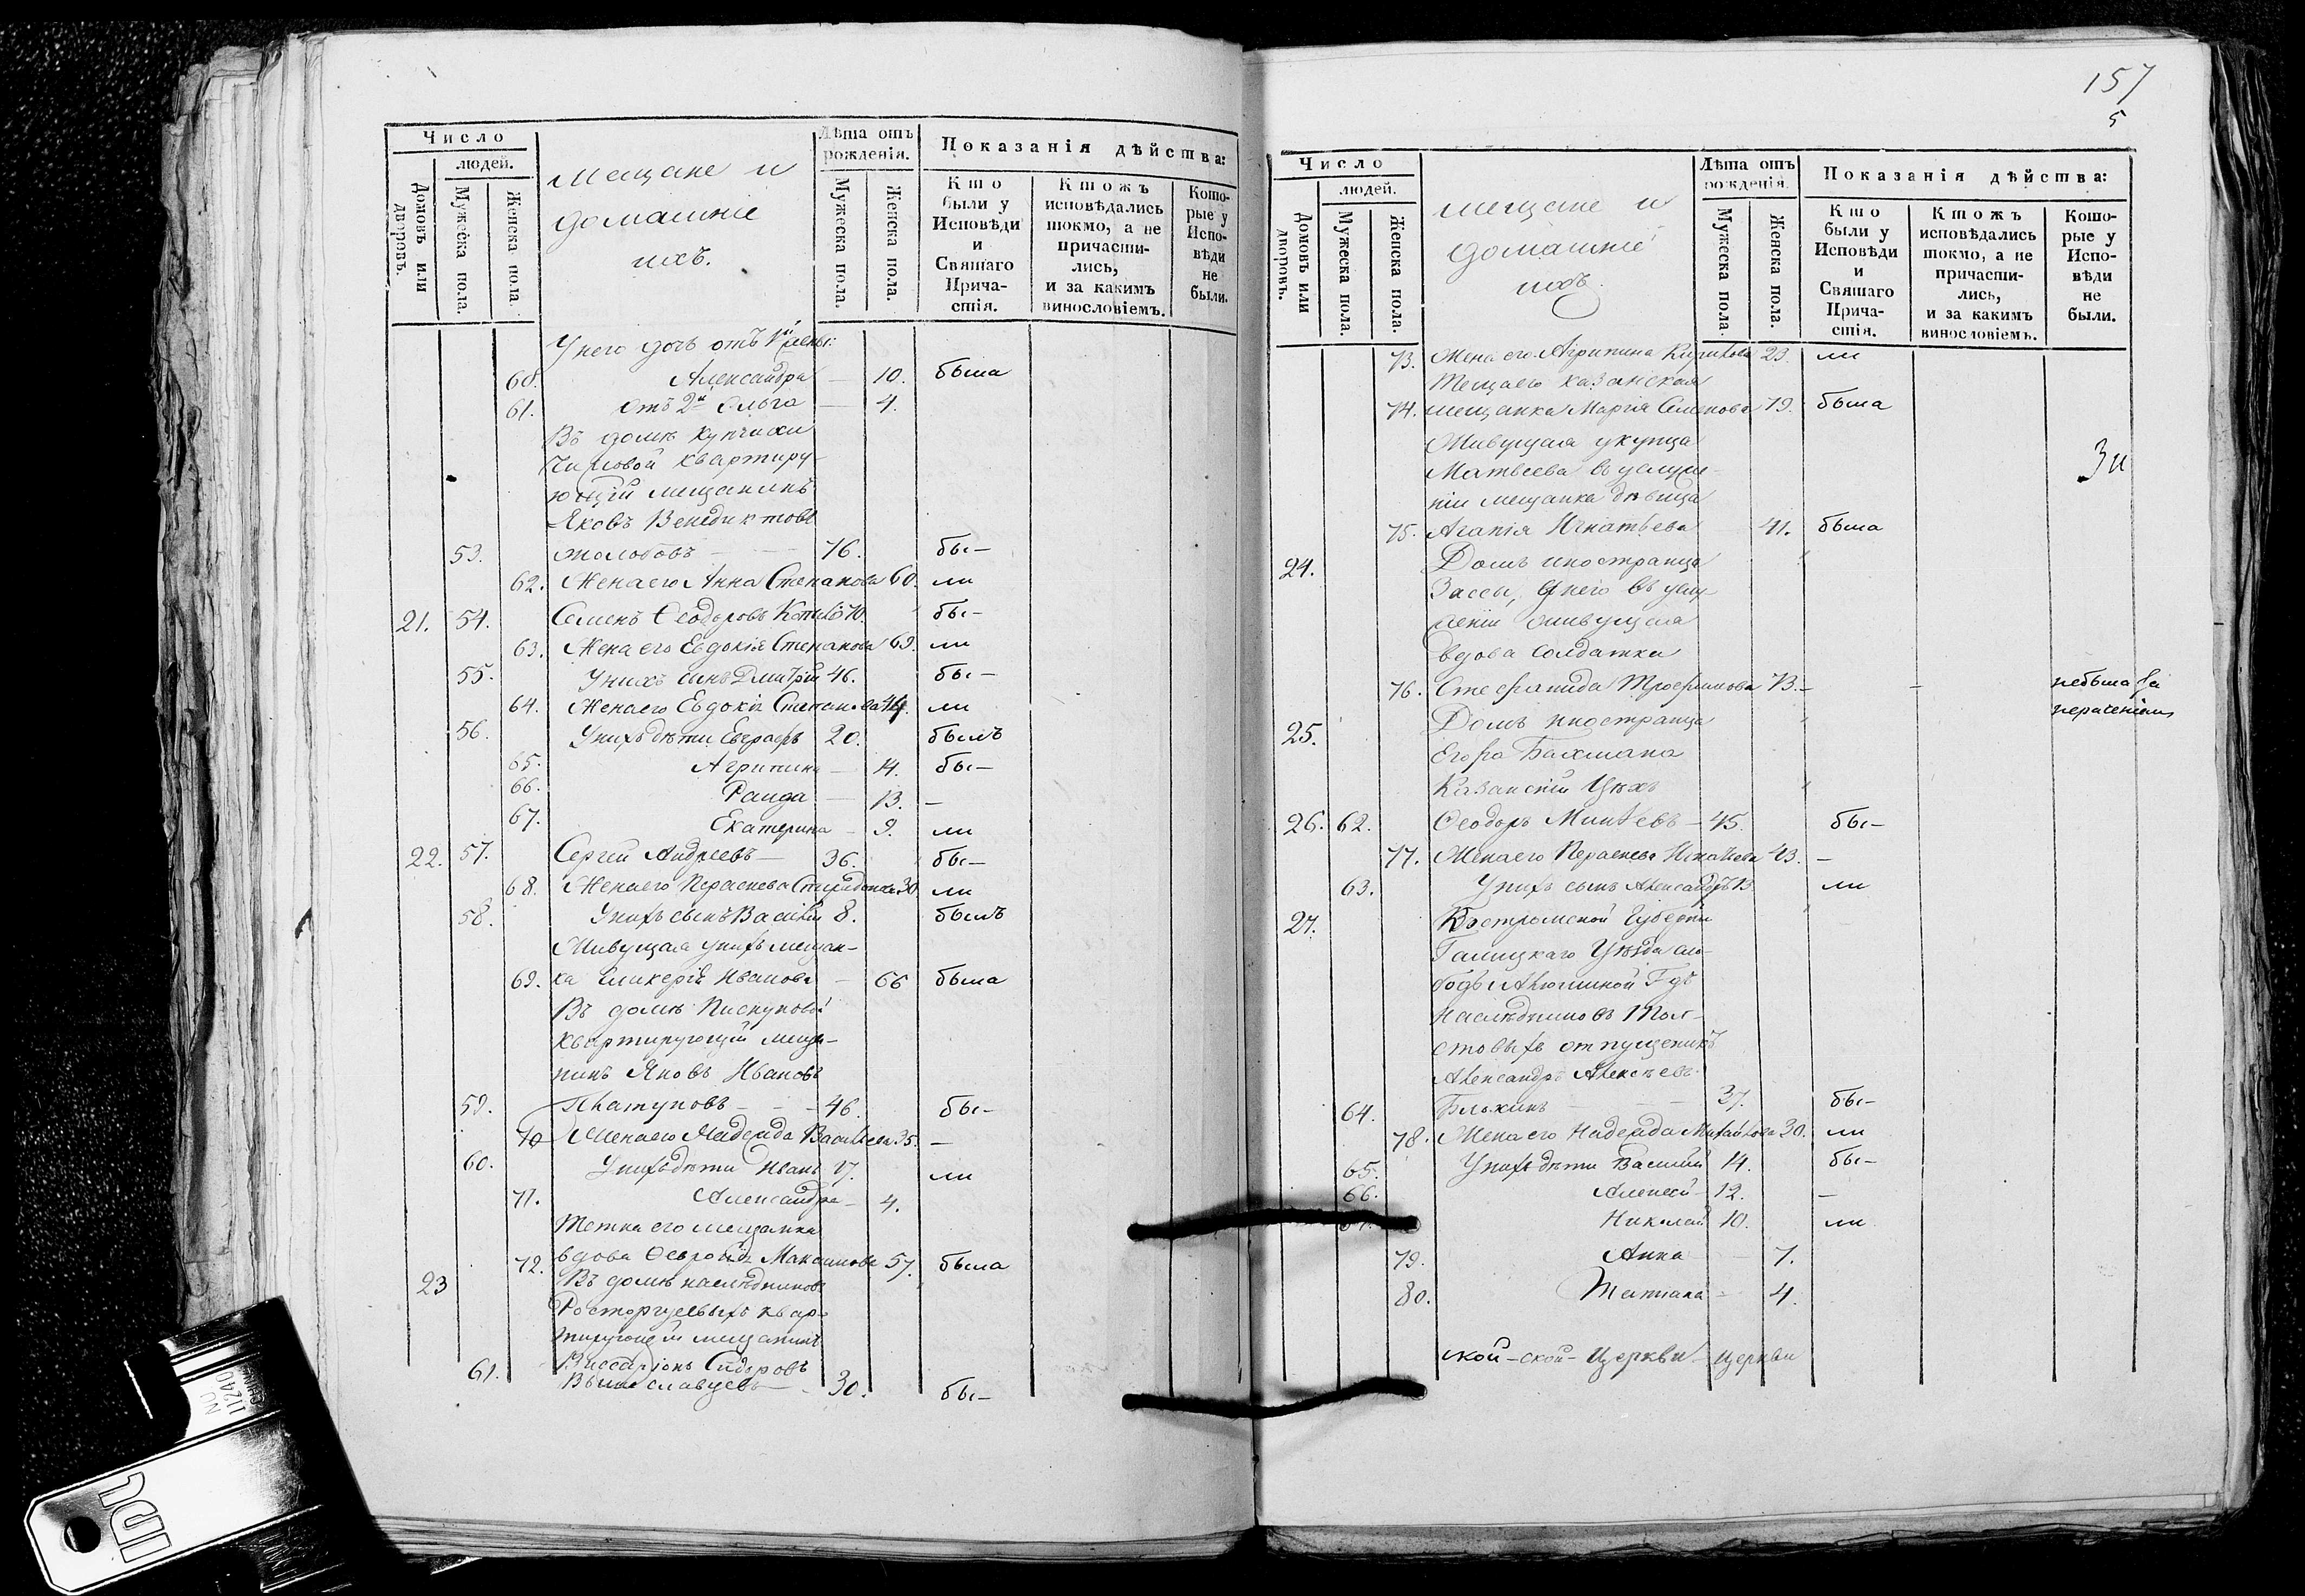 Число
людей.
Домовъ или дворовъ.
Мужеска пола.
Женска пола.
Мещане и
домашніе
ихъ.
Лѣта отъ
рожденія.
Мужеска пола.
Женска пола.
Показанія дѣйства:
Кто
были у
Исповѣди
и
Святаго
Прича-
стія.
Ктожъ
исповѣдались
токмо, а не
причасти-
лись,
и за какимъ
винословіемъ.
Кото-
рые у
Испо-
вѣди
не
были.
У него дочь отъ 1й жены:
60. Александра — 10. была
61. отъ 2й Ольга — 4.
Въ домѣ купчихи
квартиру-
ющій мещанинъ
Яковъ Венедиктовъ
53. Жолобовъ — 76. бы-
62. Жена его Анна Степанова 60. ли
21. 54. Семенъ Ѳеодоровъ 70. бы-
63. Жена его Евдокія Степанова 69. ли
55. У нихъ сынъ Дмитрій 46. бы-
64. Жена его Евдокія Степанова 44. ли
56. У нихъ дѣти Евграфъ 20. былъ
65. Агрипина — 14. бы-
66. Раида — 13. —
67. Екатерина — 9. ли
22. 57. Сергей Андреевъ — 36. бы-
68. Жена его Параскева Спиридонова 30 ли
58. У нихъ сынъ Василій 8. былъ
Живущая у нихъ мещан-
69. ка Гликерія Иванова — 66 была
Въ домѣ Пискуновой
квартирующій меща-
нинъ Яковъ Ивановъ
59. Платуновъ — 46. бы-
70 Жена его Надежда Васильева 35. —
60. У нихъ дѣти Иванъ 17. ли
71. Александра — 4.
Тетка его мещанка
72. вдова Ѳевронія Максимова 57. была
23 Въ домѣ наслѣдниковъ
Расторгуевыхъ квар-
тирующій мещанинъ
61. Виссаріонъ Сидоровъ
Вышеславцевъ — 30. бы-
157
5
Число
людей.
Домовъ или дворовъ.
Мужеска пола.
Женска пола.
мещане и
домашніе
ихъ.
Лѣта отъ
рожденія.
Мужеска пола.
Женска пола.
Показанія дѣйства:
Кто
были у
Исповѣди
и
Святаго
Прича-
стія.
Ктожъ
исповѣдались
токмо, а не
причасти-
лись,
и за какимъ
винословіемъ.
Кото-
рые у
Испо-
вѣди
не
были.
73. Жена его Агрипина Кирилова 23. ли
Теща его казанская
74. мещанка Марія Семенова 79. была
Живущая у купца
Матвеева въ услуже-
ніи мещанка дѣвица
75. Агапія Игнатьева 41. была
24. Домъ иностранца
Зассы, у него въ услу-
женіи живущая
вдова солдатка
76. Стефанида Трофимова 73. — — небыла за
нераченіемъ
25. Домъ иностранца
Егора Бахмана
Казанскій Цехъ
26. 62. Ѳеодоръ Михѣевъ — 45. бы-
77. Жена его Параскева Игнатьева 43. —
63. У нихъ сынъ Александръ 13. ли
27. Костромской Губерніи
Галицкаго Уѣзда
наслѣдниковъ Тол-
стовыхъ отпущеникъ
Александръ Алексѣевъ
64. Блохинъ — 37. бы-
78. Жена его Надежда Михайлова 30. ли
65. У нихъ дѣти Василій 14. бы-
66. Алексѣй — 12. —
67. Николай 10. ли
79. Анна — 7.
80. Татіана — 4.
ской-ской-Церкви-Церкви
IDC
NO
11240